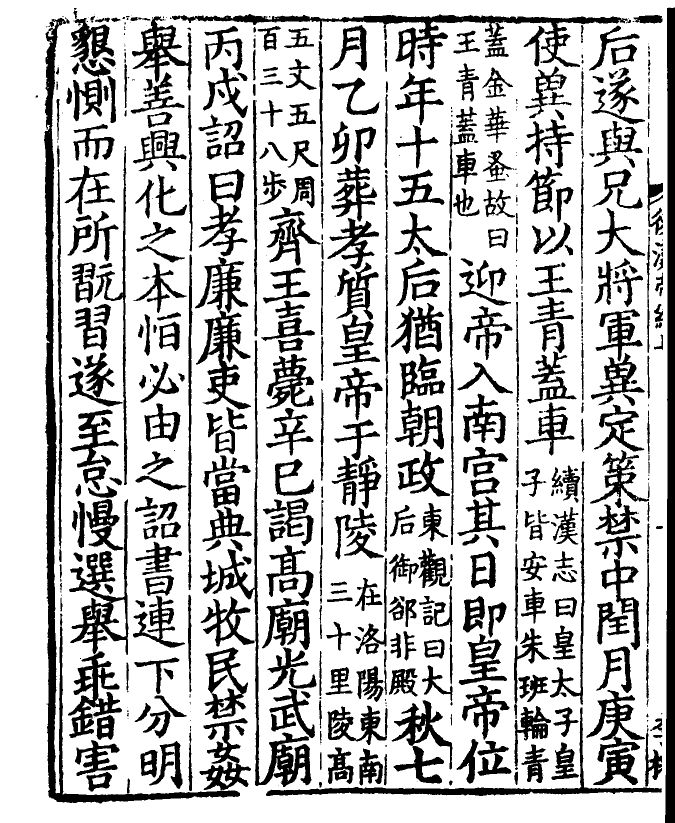 后遂與兄大將軍兾定策禁中閏月庚寅
使兾持節以王青蓋車續漢志曰皇太子皇子皆安車朱班輪青
蓋金華蚤故曰王青蓋車也迎帝入南宮其日即皇帝位
時年十五太后猶臨朝政東觀記曰大后御郤非殿秋七
月乙卯葬孝質皇帝于靜陵在洛陽東南三十里陵髙
五文五尺周百三十八步齊王喜薨辛巳謁髙廟光武廟
丙戍詔曰孝廉廉吏皆當典城牧民禁姦
舉善興化之本怕必由之詔書連下分明
懇惻而在所翫習遂至怠慢選舉乖錯害